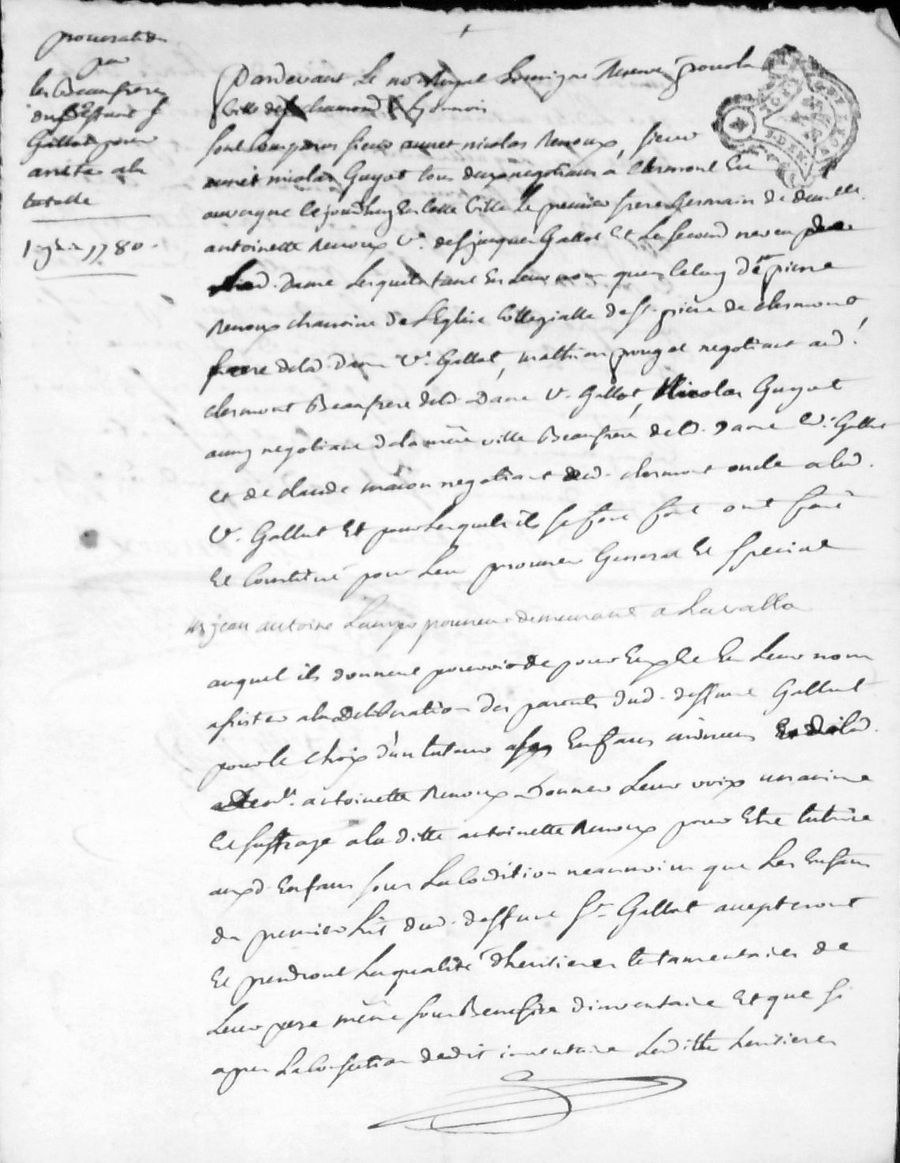 procuration
par
les Beaufreres
du deffunt s
Gallot pour
assister a la
tutelle
1 9bre 1780.
Pardevant Le no. Royal Soussigné Reservé pour la
Ville de st chamond Lyonnois
sont comparus sieur annet nicolas Renoux, sieur
annet nicolas Guyot tous deux negotians à Clermont En
auvergne Ce jourdhuy En Cette Ville Le premier frere Germain de demlle
antoinette Renoux Ve. de sr jacques Gallot Et Le second neveu de
Lad. Dame Lesquels tant En Leur nom que celuy de sr pierre
Renoux chanoine de L'Eglise Collegialle de st. pierre de clermont
frere de lad Dame Ve. Gallot, mathieu pouget negotiant aud.
clermont Beaufrere de lad. Dame Ve. Gallot, Nicolas Guyot
aussy negotiant de la même ville Beaufrere de lad. Dame Ve. Gallot
et de claude maison negotiant dud. clermont oncle a lad.
Ve. Gallot Et pour Lesquels ils se font fort ont fait
Et Constitué pour Leur procureur General Et Special
Me jean antoine procureur demeurant a Lavalla
auquel ils donnent pouvoir de pour Eux & En Leur nom
assister a la deliberation des parents dud. deffunt Gallot
pour le choix d'un tuteur a ses Enfans mineurs Et de lad.
antoinette Renoux Donner Leur voix unanime
Et suffrage a la ditte antoinette Renoux pour Etre tutrice
auxd. Enfans sous La Condition neanmoins que Les Enfans
du premier Lit dud. deffunt Sr. Gallot accepteront
Et prendront La qualité d'heritiers testamentaires de
Leur pere même sous Benefice d'inventaire Et que si
apres La Confection dudit inventaire Lesditts heritiers